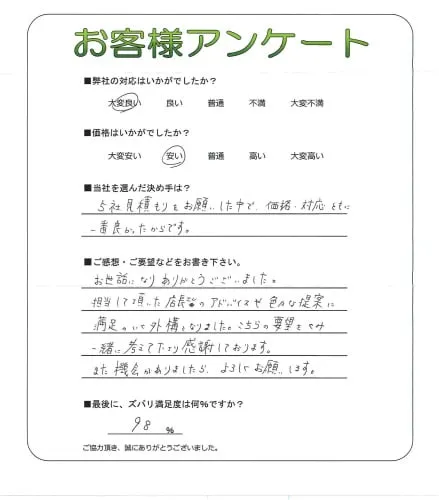 お客様アンケート
■弊社の対応はいかがでしたか？
大変良い 良い 普通 不満 大変不満
■価格はいかがでしたか？
大変安い 安い 普通 高い 大変高い
■当社を選んだ決め手は？
5社見積もりをお願いした中で、価格・対応ともに
一番良かったからです。
■ご感想・ご要望などをお書き下さい。
お世話になりありがとうございました。
担当して頂いた店長さんのアドバイスや色々な提案に
満足のいく外構となりました。こちらの要望も
一緒に考えて下さり感謝しております。
また機会がありましたら、よろしくお願いします。
■最後に、ズバリ満足度は何％ですか？
98 %
ご協力頂き、誠にありがとうございました。